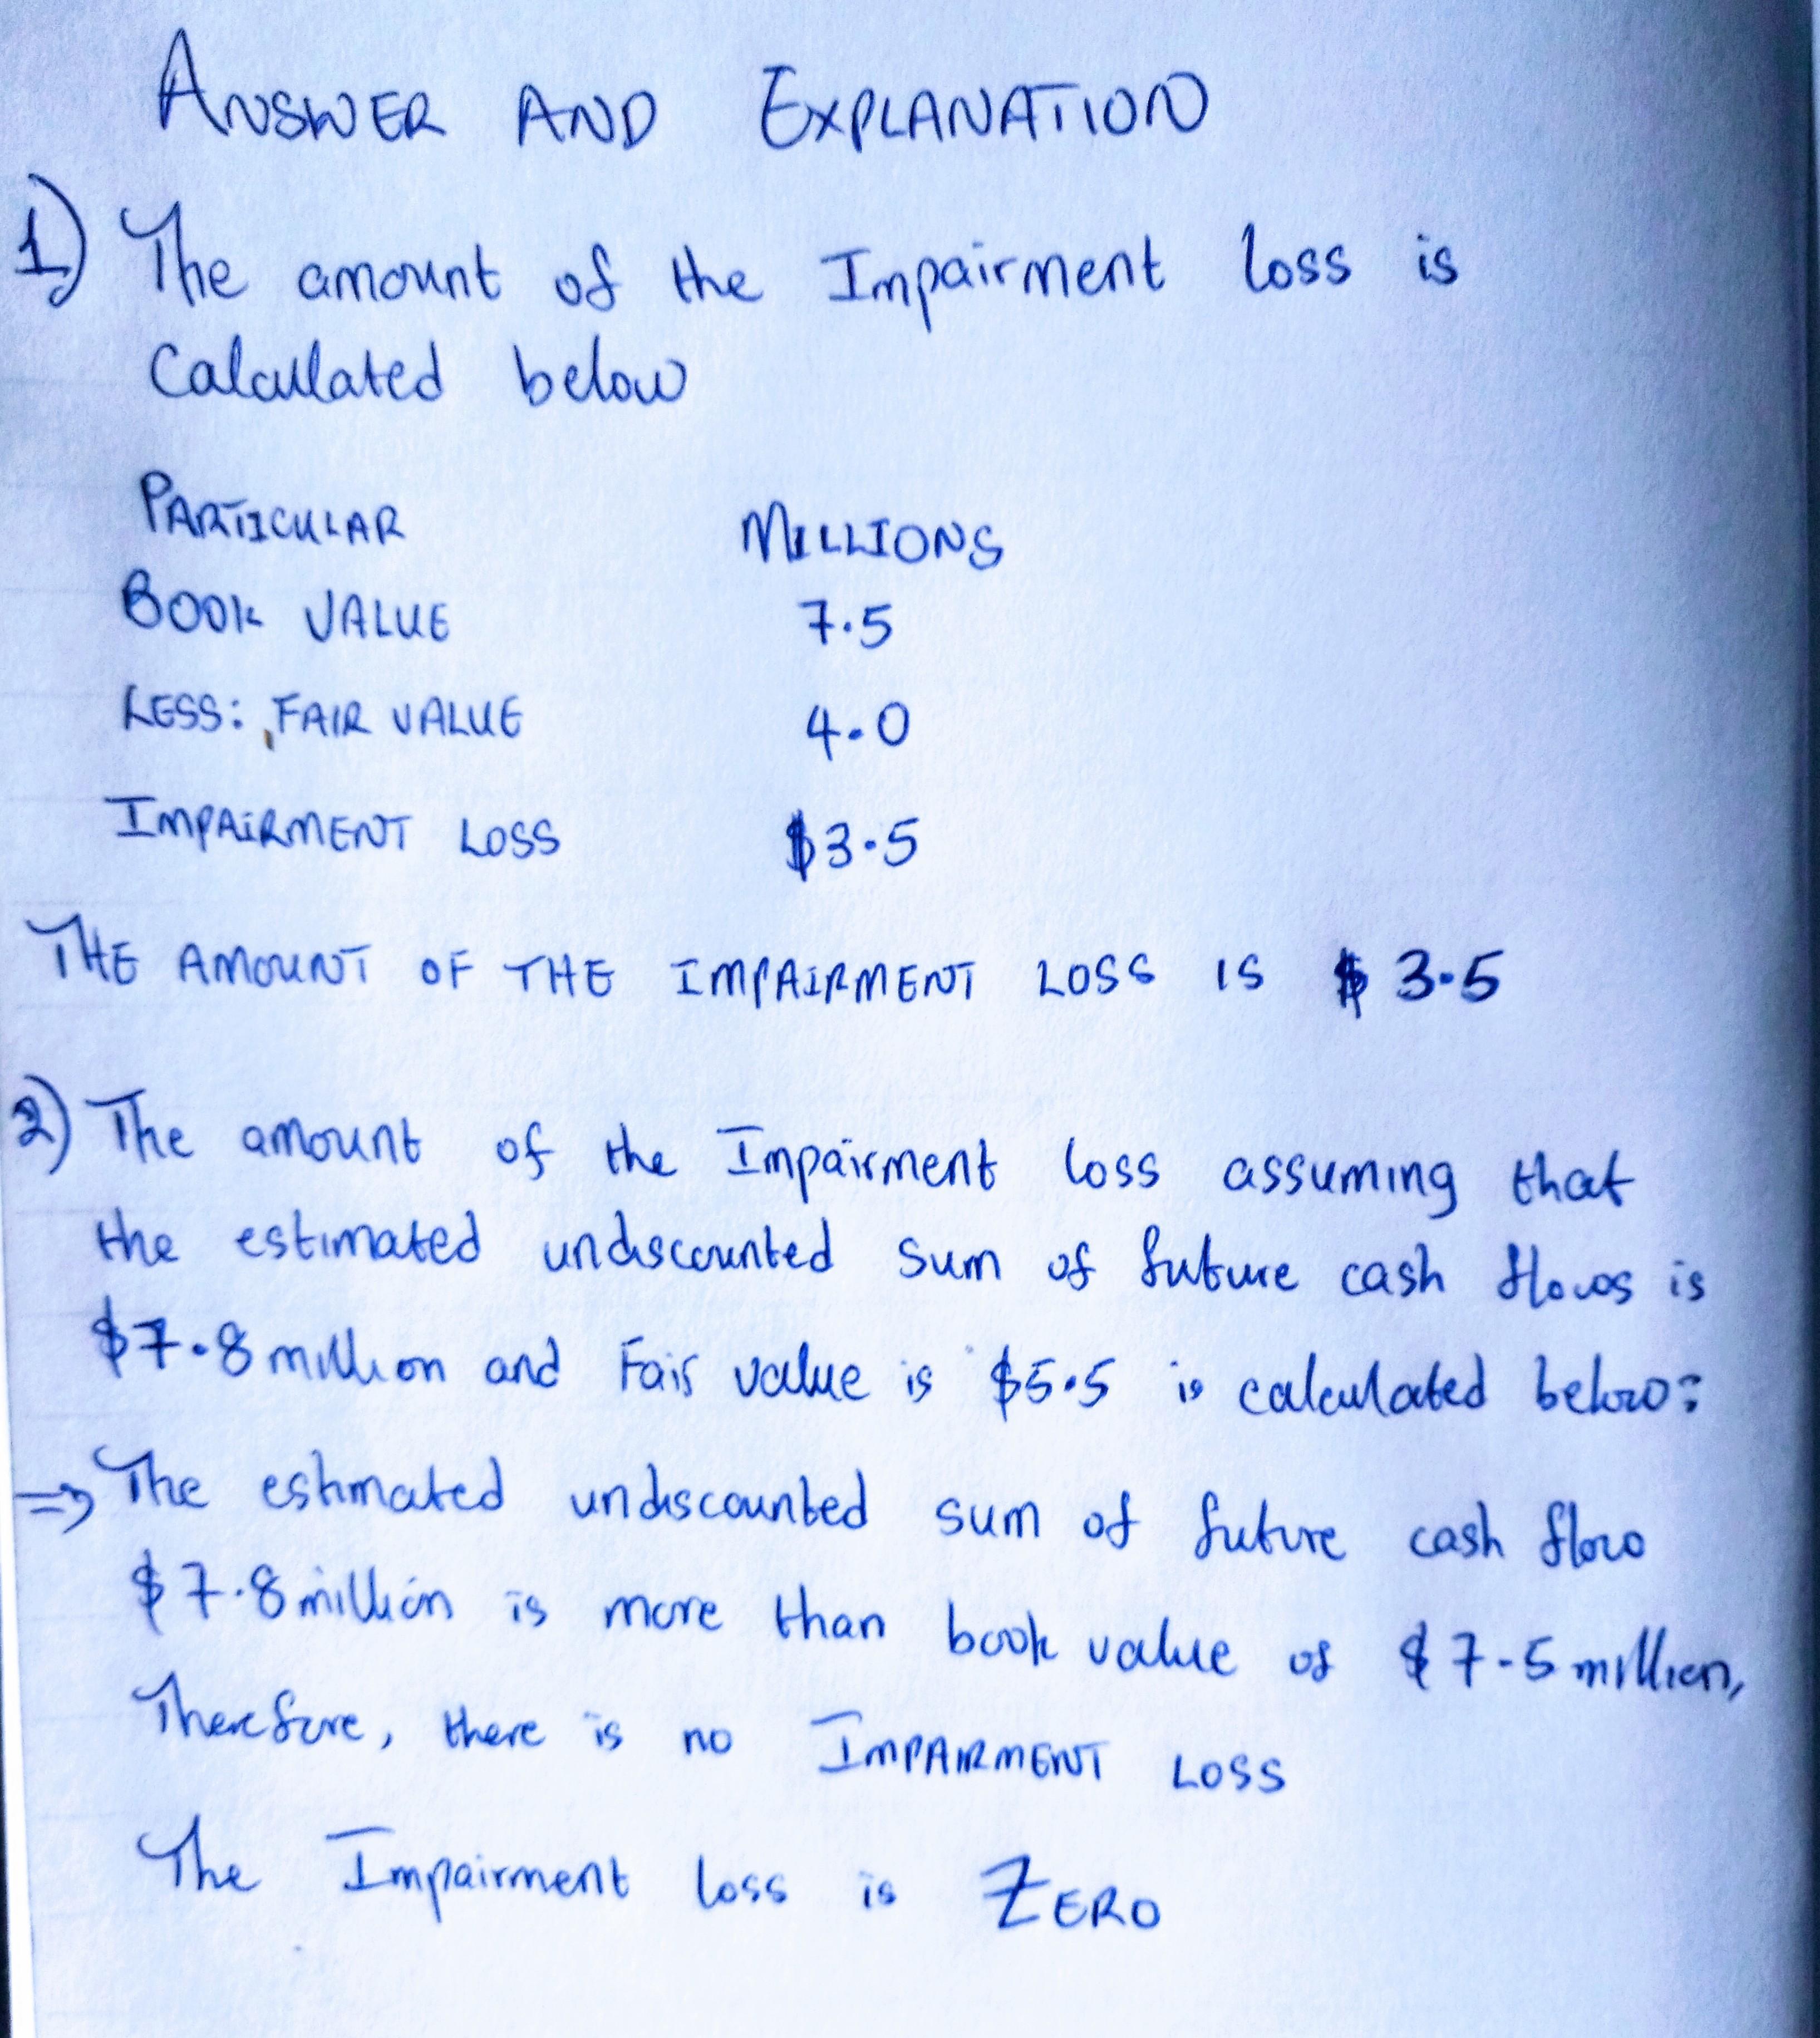 ANSWER AND EXPLANATION
1) The amount of the Impairment loss is
Calculated below
PARTICULAR MILLIONS
BOOK VALUE 7.5
LESS: FAIR VALUE 4.0
IMPAIRMENT LOSS $3.5
THE AMOUNT OF THE IMPAIRMENT LOSS IS $3.5
2) The amount of the Impairment loss assuming that
the estimated undiscounted sum of future cash flows is
$7.8 million and Fair value is $5.5 is calculated below:
⇒ The estimated undiscounted sum of future cash flow
$7.8 million is more than book value of $7.5 million,
Therefore, there is no IMPAIRMENT LOSS
The Impairment loss is ZERO